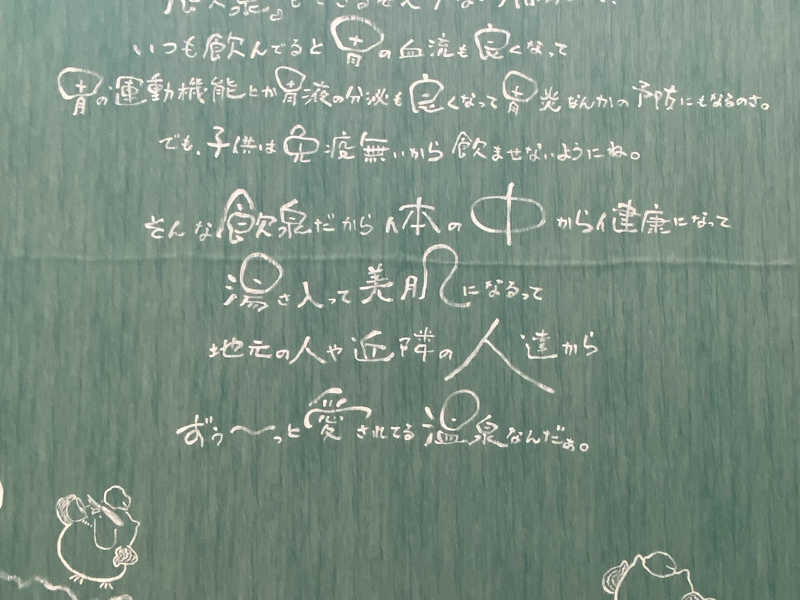 いつも飲んでると胃の血流も良くなって
胃の運動機能とか胃液の分泌も良くなって胃炎なんかの予防にもなるのさ。
でも、子供は免疫無いから飲ませないようにね。
そんな飲泉だから体の中から健康になって
湯さ入って美肌になるって
地元の人や近隣の人達から
ずぅ〜っと愛されてる温泉なんだぁ。